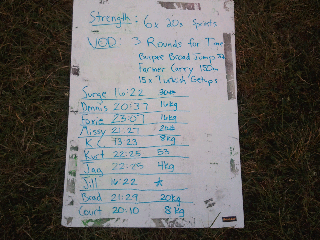 Strength: 6x 20s Sprints
WOD: 3 Rounds for Time
Burpee Broad Jump
Farmer Carry 150m
15x Turkish Getups
Surge 16:22
Dennis 20:37 16kg
Foxie 23:07 16kg
Missy 21:27
K.C. 8kg
Kurt 22:25 53
Jay 22:25 4kg
Jill 16:22 *
Brad 21:29 20kg
Court 20:10 8kg